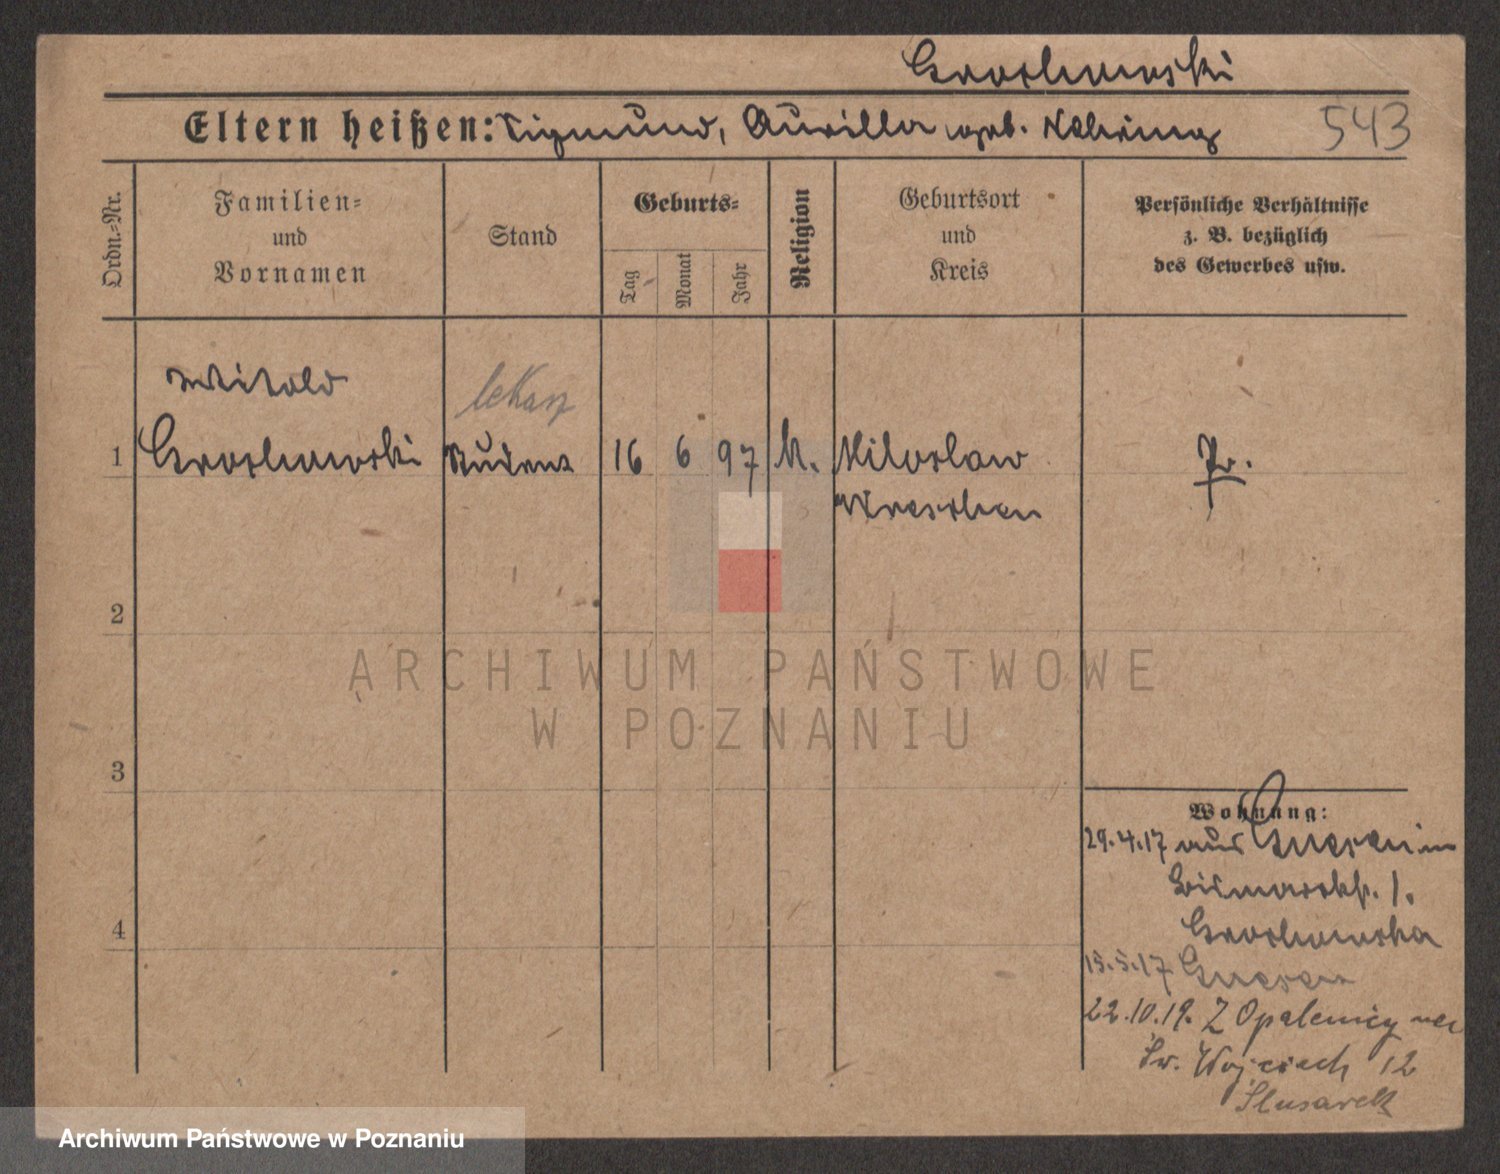 Grochowski
Eltern heißen: Sigmund, Aurilla geb. Nehring
543
Ordn.-Nr.
Familien-
und
Vornamen
Stand
Geburts-
Tag
Monat
Jahr
Religion
Geburtsort
und
Kreis
Persönliche Verhältnisse
z. B. bezüglich
des Gewerbes usw.
Witold
lekarz
1 Grochowski Student 16 6 97 k. Miloslaw Pr.
Wreschen
2
ARCHIWUM PAŃSTWOWE
W POZNANIU
3
Wohnung:
29.4.17 aus Gnesen in
Bismarckstr. 1.
4
Grochowska
15.5.17 Gnesen
22.10.19. Z Opalenicy
Św. Wojciech 12
Slusarek
Archiwum Państwowe w Poznaniu